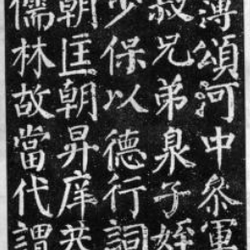 薄頌河中叅軍
叔兄弟泉子姪
少保以德行詞
朝匡朝昇庠恭
儒林故當代謂